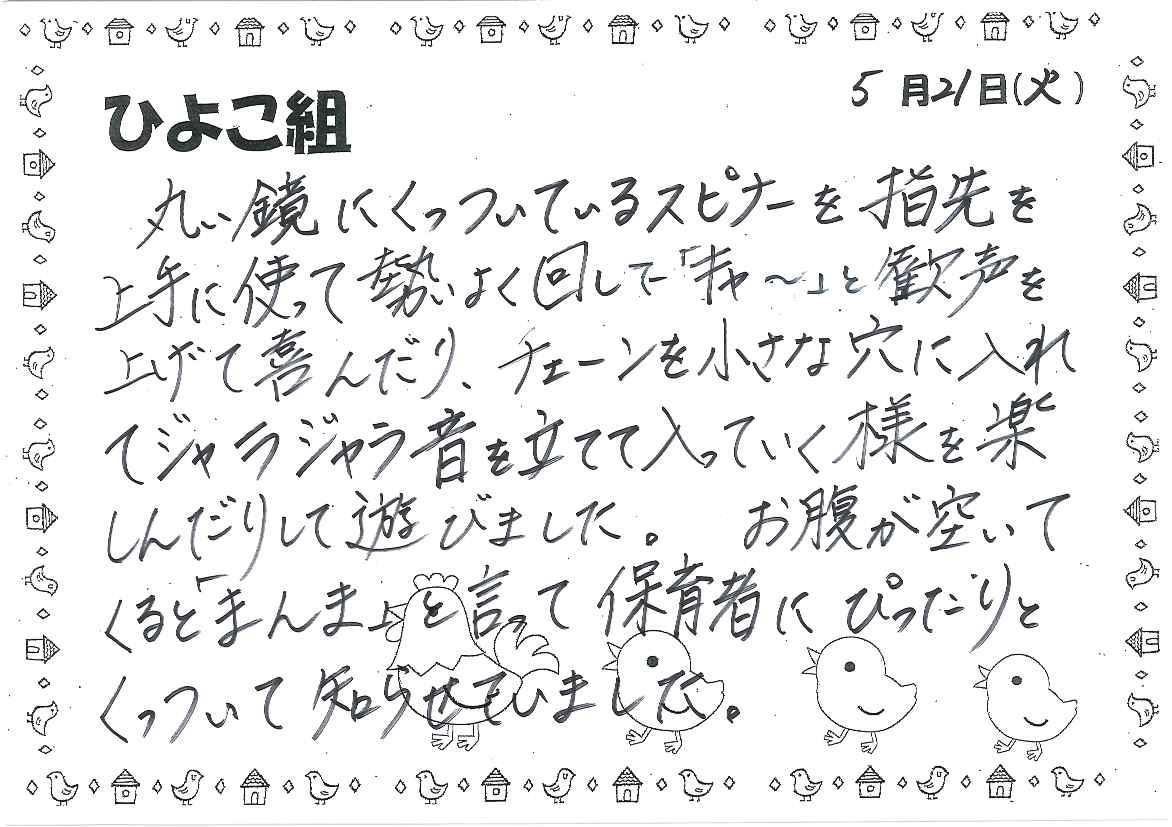 5月21日(火)
ひよこ組
丸い鏡にくっついているスピナーを指先を
上手に使って勢いよく回して「キャ〜」と歓声を
上げて喜んだり、チェーンを小さな穴に入れ
てジャラジャラ音を立てて入っていく様を楽
しんだりして遊びました。 お腹が空いて
くると「まんま」と言って保育者にぴったりと
くっついて知らせていました。